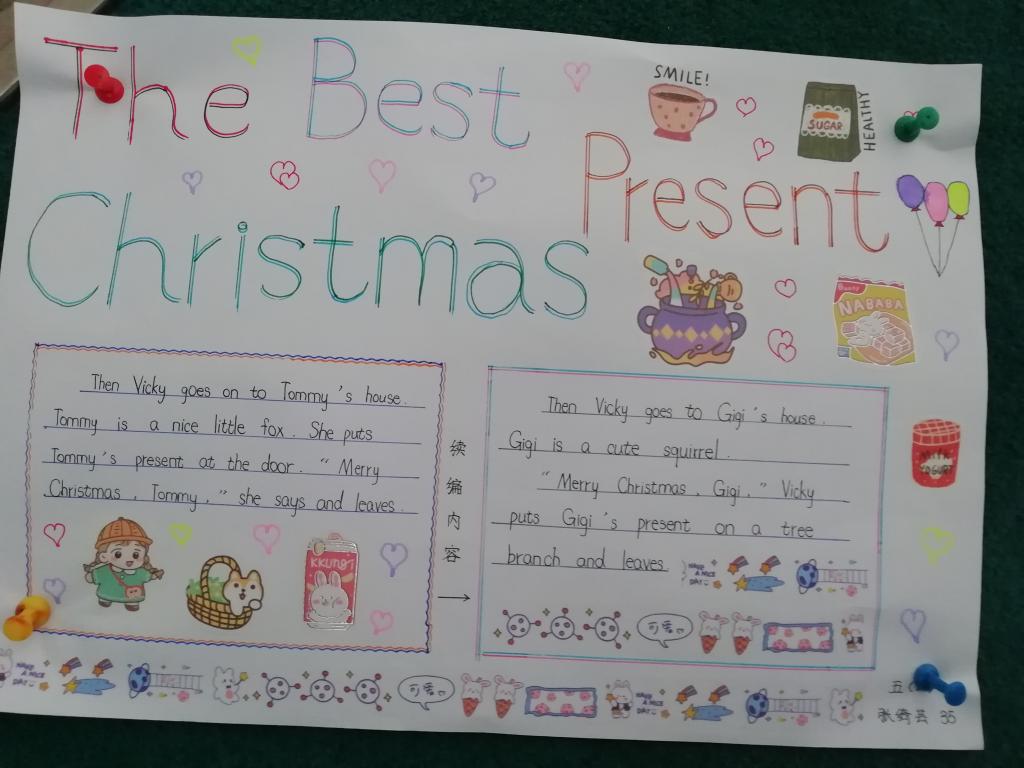 The Best
Christmas
Present
SMILE!
SUGAR
HEALTHY
NABABA
MILK
YOGURT
Then Vicky goes on to Tommy's house.
Tommy is a nice little fox. She puts
Tommy's present at the door. "Merry
Christmas, Tommy," she says and leaves.
KKUNGI
续编内容
Then Vicky goes to Gigi's house.
Gigi is a cute squirrel.
"Merry Christmas, Gigi," Vicky
puts Gigi's present on a tree
branch and leaves.
HAVE A NICE DAY
可爱
HAVE A NICE DAY
可爱
HAVE A NICE DAY
五
35